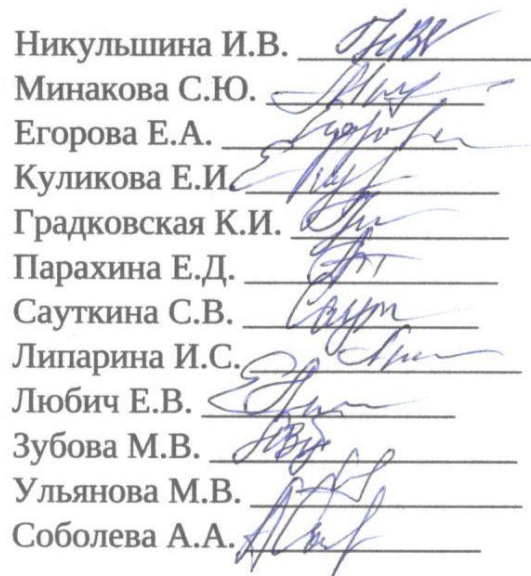 Никульшина И.В.
Минакова С.Ю.
Егорова Е.А.
Куликова Е.И.
Градковская К.И.
Парахина Е.Д.
Сауткина С.В.
Липарина И.С.
Любич Е.В.
Зубова М.В.
Ульянова М.В.
Соболева А.А.